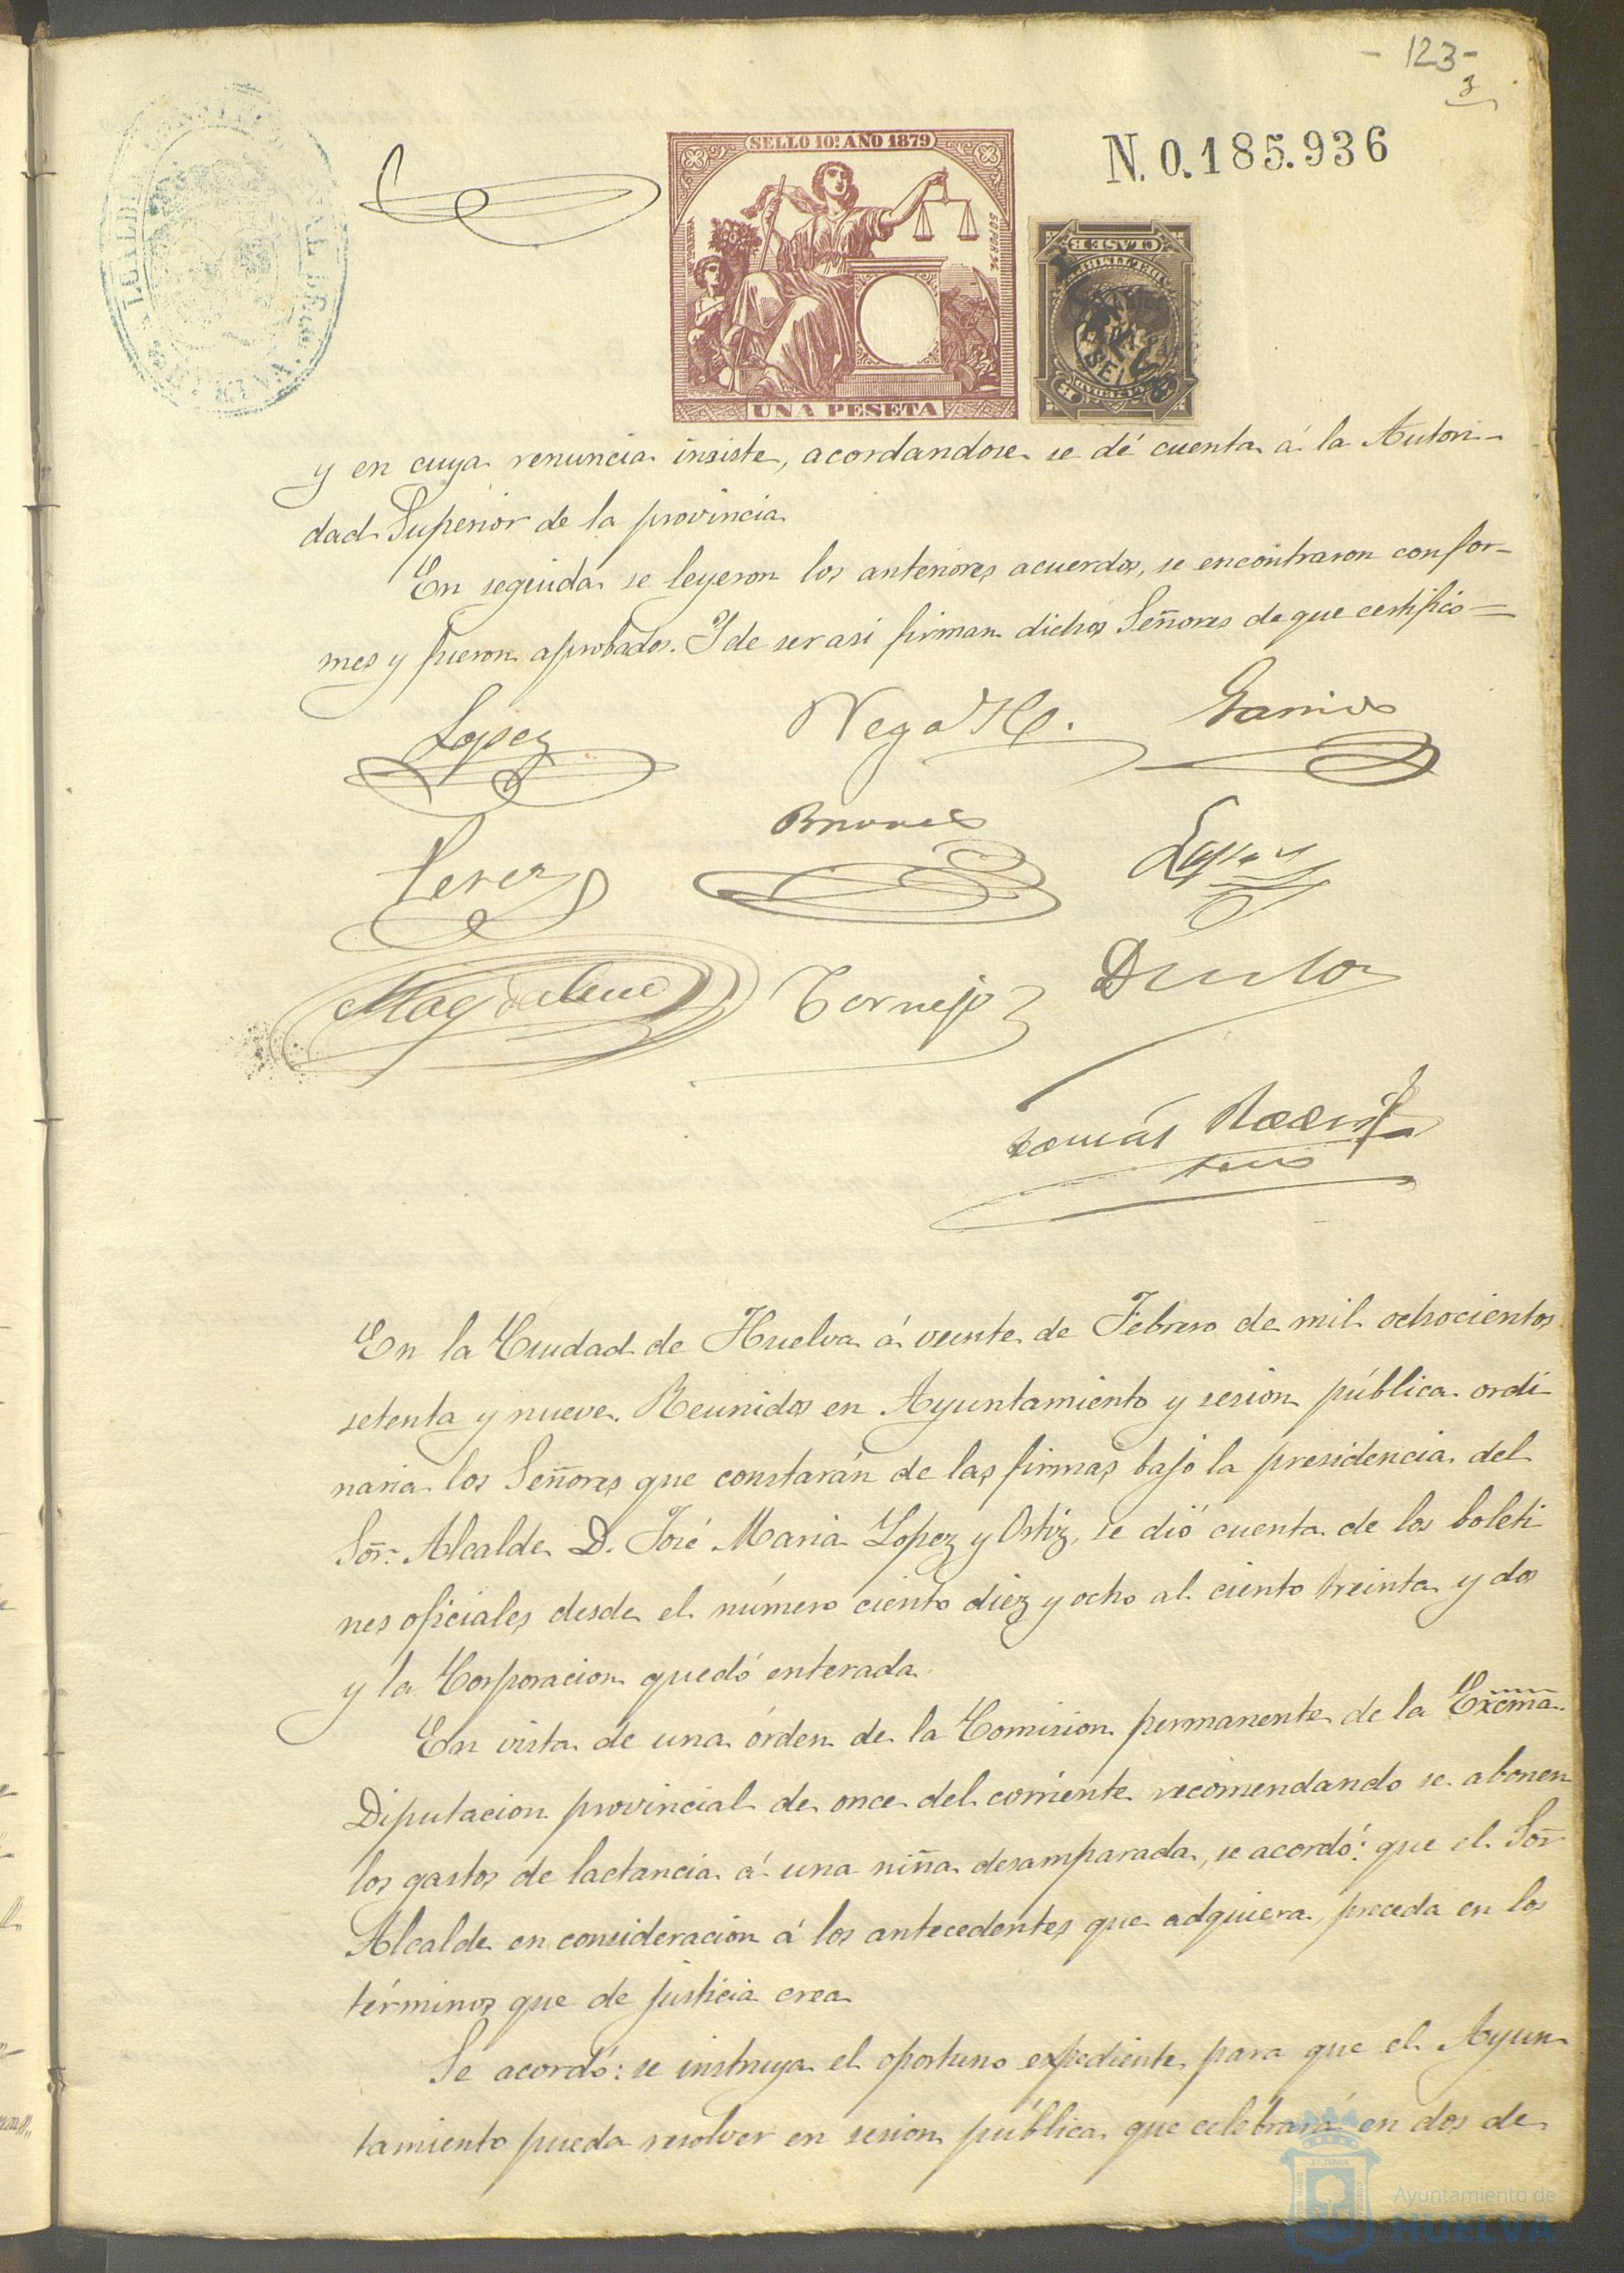 - 123 -
3
SELLO 10º AÑO 1879
N. 0.185.936
CLASE 8
UNA PESETA
HUELVA
y en cuya renuncia insiste, acordandose se dé cuenta á la Autori-
dad Superior de la provincia
En seguida se leyeron los anteriores acuerdos, se encontraron confor-
mes y fueron aprobados. Y de ser asi firman dichos Señores de que certifico =
Lopez
Vega
Perez
Lopez
Magdalena
Cornejo
Tomás
En la Ciudad de Huelva á veinte de Febrero de mil ochocientos
setenta y nueve. Reunidos en Ayuntamiento y sesion pública ordi
naria los Señores que constarán de las firmas bajo la presidencia del
Sor. Alcalde D. José Maria Lopez y Ortiz, se dió cuenta de los boleti
nes oficiales desde el número ciento diez y ocho al ciento treinta y dos
y la Corporacion quedó enterada.
En vista de una órden de la Comision permanente de la Excma.
Diputacion provincial de once del corriente recomendando se abonen
los gastos de lactancia á una niña desamparada, se acordó: que el Sor
Alcalde en consideracion á los antecedentes que adquiera, proceda en los
términos que de justicia crea
Se acordó: se instruya el oportuno expediente para que el Ayun
tamiento pueda resolver en sesion pública que celebrará en dos de
Ayuntamiento de
HUELVA